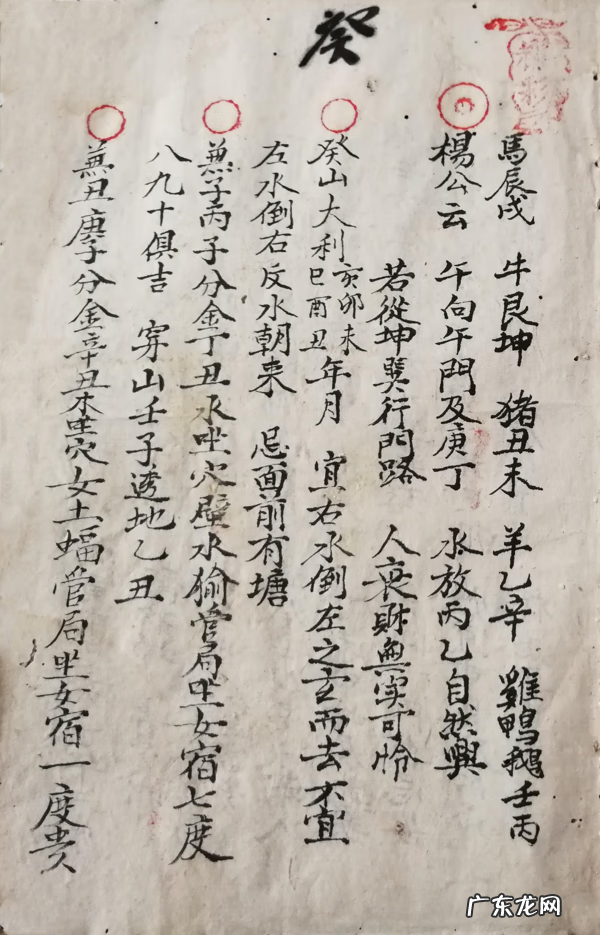 癸
馬辰戌　牛艮坤　猪丑未　羊乙辛　雞鴨鵝壬丙
楊公云　午向午門及庚丁　水放丙乙自然興
若從坤巽行門路　人衰財興實可怜
癸山大利亥卯未巳酉丑年月　宜右水倒左之玄而去不宜
左水倒右反水朝来　忌面前有塘
兼子丙子分金丁丑水坐穴壁水貐管局坐女宿七度
八九十俱吉　穿山壬子透地乙丑
兼丑庚子分金辛丑木坐穴女土蝠管局坐女宿一度貴
广东龙网